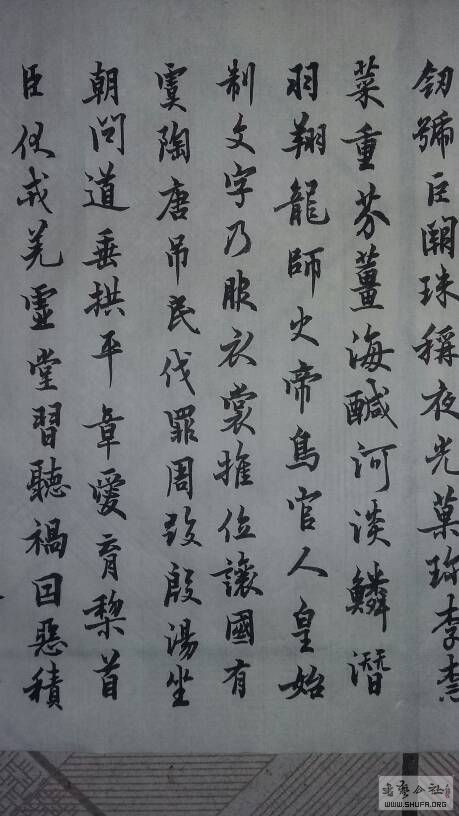 釼號巨闕珠稱夜光菓珎李柰
菜重芥薑海鹹河淡鱗潛
羽翔龍師火帝鳥官人皇始
制文字乃服衣裳推位讓國有
虞陶唐吊民伐罪周發殷湯坐
朝問道垂拱平章愛育黎首
臣伏戎羌虛堂習聽禍因惡積
书艺公社
WWW.SHUFA.ORG